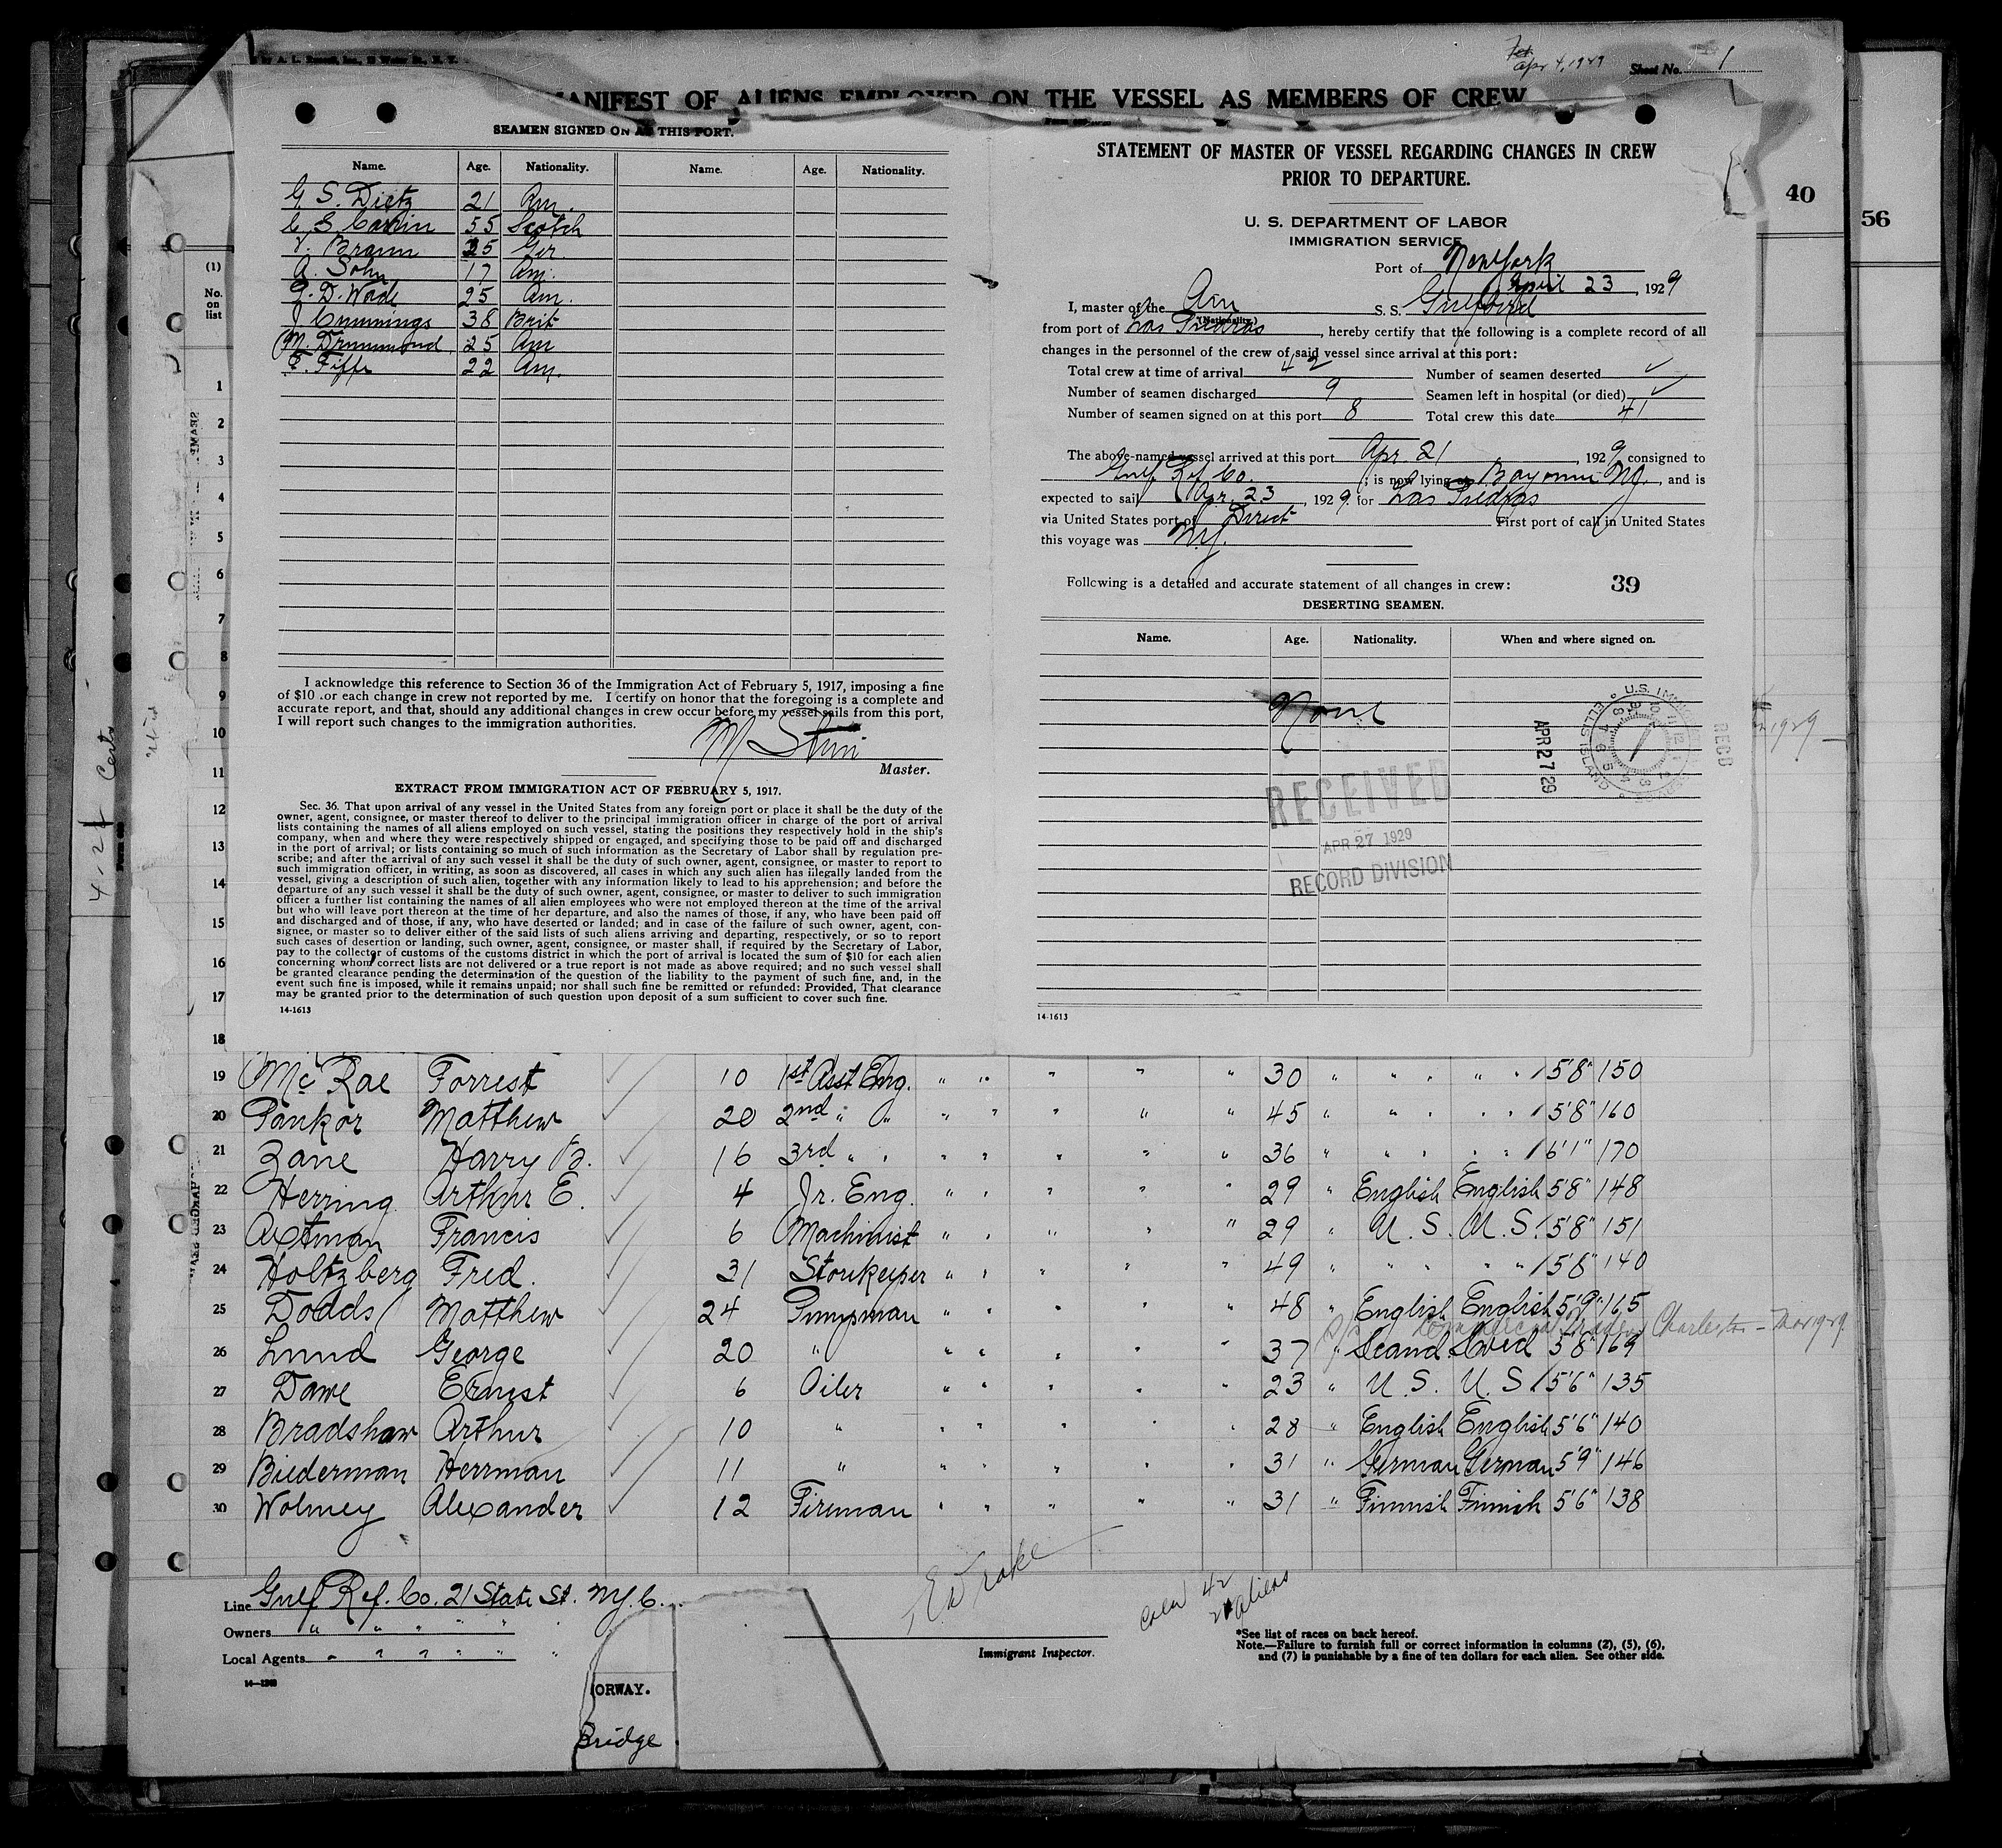 Apr 4, 1929
Sheet No. 1
MANIFEST OF ALIENS EMPLOYED ON THE VESSEL AS MEMBERS OF CREW
SEAMEN SIGNED ON AT THIS PORT.
Name. Age. Nationality. Name. Age. Nationality.
G. S. Dietz 21 Am.
C. S. Carlin 55 Scotch
Braun 25 Ger.
A. Sohn 17 Am.
D. Wade 25 Am.
J. Cummings 38 Brit
M. Drummond 25 Am
E. Fiffe 22 Am.
I acknowledge this reference to Section 36 of the Immigration Act of February 5, 1917, imposing a fine
of $10 .or each change in crew not reported by me. I certify on honor that the foregoing is a complete and
accurate report, and that, should any additional changes in crew occur before my vessel sails from this port,
I will report such changes to the immigration authorities.
Master.
EXTRACT FROM IMMIGRATION ACT OF FEBRUARY 5, 1917.
Sec. 36. That upon arrival of any vessel in the United States from any foreign port or place it shall be the duty of the
owner, agent, consignee, or master thereof to deliver to the principal immigration officer in charge of the port of arrival
lists containing the names of all aliens employed on such vessel, stating the positions they respectively hold in the ship's
company, when and where they were respectively shipped or engaged, and specifying those to be paid off and discharged
in the port of arrival; or lists containing so much of such information as the Secretary of Labor shall by regulation pre-
scribe; and after the arrival of any such vessel it shall be the duty of such owner, agent, consignee, or master to report to
such immigration officer, in writing, as soon as discovered, all cases in which any such alien has illegally landed from the
vessel, giving a description of such alien, together with any information likely to lead to his apprehension; and before the
departure of any such vessel it shall be the duty of such owner, agent, consignee, or master to deliver to such immigration
officer a further list containing the names of all alien employees who were not employed thereon at the time of the arrival
but who will leave port thereon at the time of her departure, and also the names of those, if any, who have been paid off
and discharged and of those, if any, who have deserted or landed; and in case of the failure of such owner, agent, con-
signee, or master so to deliver either of the said lists of such aliens arriving and departing, respectively, or so to report
such cases of desertion or landing, such owner, agent, consignee, or master shall, if required by the Secretary of Labor,
pay to the collector of customs of the customs district in which the port of arrival is located the sum of $10 for each alien
concerning whom correct lists are not delivered or a true report is not made as above required; and no such vessel shall
be granted clearance pending the determination of the question of the liability to the payment of such fine, and, in the
event such fine is imposed, while it remains unpaid; nor shall such fine be remitted or refunded: Provided, That clearance
may be granted prior to the determination of such question upon deposit of a sum sufficient to cover such fine.
14-1613
STATEMENT OF MASTER OF VESSEL REGARDING CHANGES IN CREW
PRIOR TO DEPARTURE.
U. S. DEPARTMENT OF LABOR
IMMIGRATION SERVICE
Port of New York
April 23, 1929
I, master of the Am S. S. Gulfbird
(Nationality.)
from port of Las Piedras, hereby certify that the following is a complete record of all
changes in the personnel of the crew of said vessel since arrival at this port:
Total crew at time of arrival 42 Number of seamen deserted ✓
Number of seamen discharged 9 Seamen left in hospital (or died) ✓
Number of seamen signed on at this port 8 Total crew this date 41
The above-named vessel arrived at this port Apr 21, 1929 consigned to
Gulf Ref Co.; is now lying at Bayonne NJ., and is
expected to sail Apr. 23, 1929 for Las Piedras
via United States port of Direct First port of call in United States
this voyage was N.Y.
Following is a detailed and accurate statement of all changes in crew: 39
DESERTING SEAMEN.
Name. Age. Nationality. When and where signed on.
None
RECEIVED
APR 27 1929
RECORD DIVISION
APR 27 29
ELLIS ISLAND
RECD
40
56
(1)
No.
on
list
1
2
3
4
5
6
7
8
9
10
11
12
13
14
15
16
17
18
19 McRae Forrest ✓ 10 1st Asst Eng. " " " " " 30 " " " " " 5'8" 150
20 Pankor Matthew ✓ 20 2nd " " " " " " " 45 " " " " " 5'8" 160
21 Zane Harry B. ✓ 16 3rd " " " " " " " 36 " " " " " 6'1" 170
22 Herring Arthur E. ✓ 4 Jr. Eng. " " " " " 29 " English English 5'8" 148
23 Axtman Francis ✓ 6 Machinist " " " " " 29 " U. S. U. S. 5'8" 151
24 Holtzberg Fred. ✓ 31 Storekeeper " " " " " 49 " " " " " 5'8" 140
25 Dodds Matthew ✓ 24 Pumpman " " " " " 48 " English English 5'9" 165
Charleston - Mar 1929
26 Lund George ✓ 20 " " " " " " 37 " Scand. Swed 5'8" 169
27 Dawe Ernest ✓ 6 Oiler " " " " " 23 " U. S. U. S. 5'6" 135
28 Bradshaw Arthur ✓ 10 " " " " " " 28 " English English 5'6" 140
29 Biederman Herrman ✓ 11 " " " " " " 31 " German German 5'9" 146
30 Wolmey Alexander ✓ 12 Fireman " " " " " 31 " Finnish Finnish 5'6" 138
Line Gulf Ref. Co. 21 State St. N.Y.C.
Owners " " " " "
Local Agents " " " " " "
14-1240
Immigrant Inspector.
Crew 42
aliens
*See list of races on back hereof.
Note.—Failure to furnish full or correct information in columns (2), (5), (6),
and (7) is punishable by a fine of ten dollars for each alien. See other side.
ORWAY.
Bridge